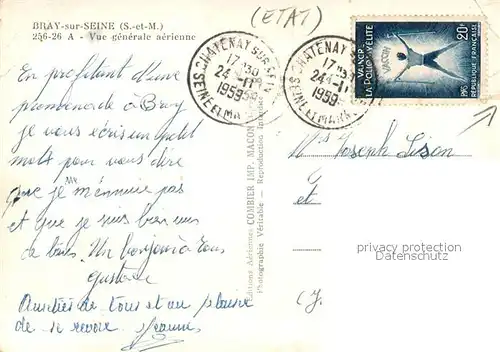 BRAY-sur-SEINE (S.-et-M.)
256-26 A - Vue générale aérienne
(ETAT)
CHATENAY SUR SEINE
17 H30
24 -11
1959
SEINE ET MARNE
CHATENAY S
17 H30
24 -11
1959
SEINE ET MARNE
VAINCRE
LA POLIOMYÉLITE
20F
VACCIN
REPUBLIQUE FRANÇAISE
En profitant d'une
promenade à Bray
je vous écris un petit
mot pour vous dire
que je m'ennuie pas
et que je suis bien vu
de tous. Un bonjour à tous
Gustave
Amitiés de tous et au plaisir
de se revoir Jeanne
Editions Aériennes COMBIER IMP. MACON
Photographie Véritable - Reproduction Interdite
Joseph
et
privacy protection
watermark